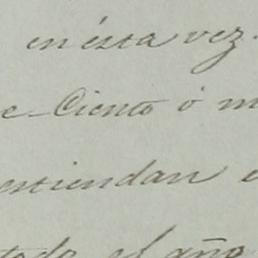 en ésta vez.
e Ciento ó m
estiendan e
todo el año